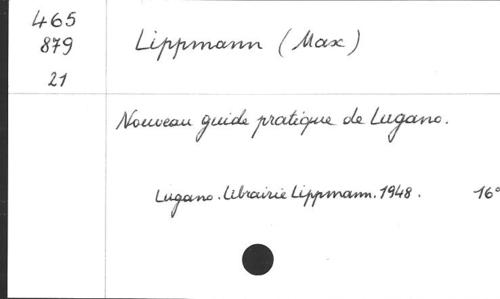 465
879
21
Lippmann (Max)
Nouveau guide pratique de Lugano.
Lugano. Librairie Lippmann. 1948. 16°